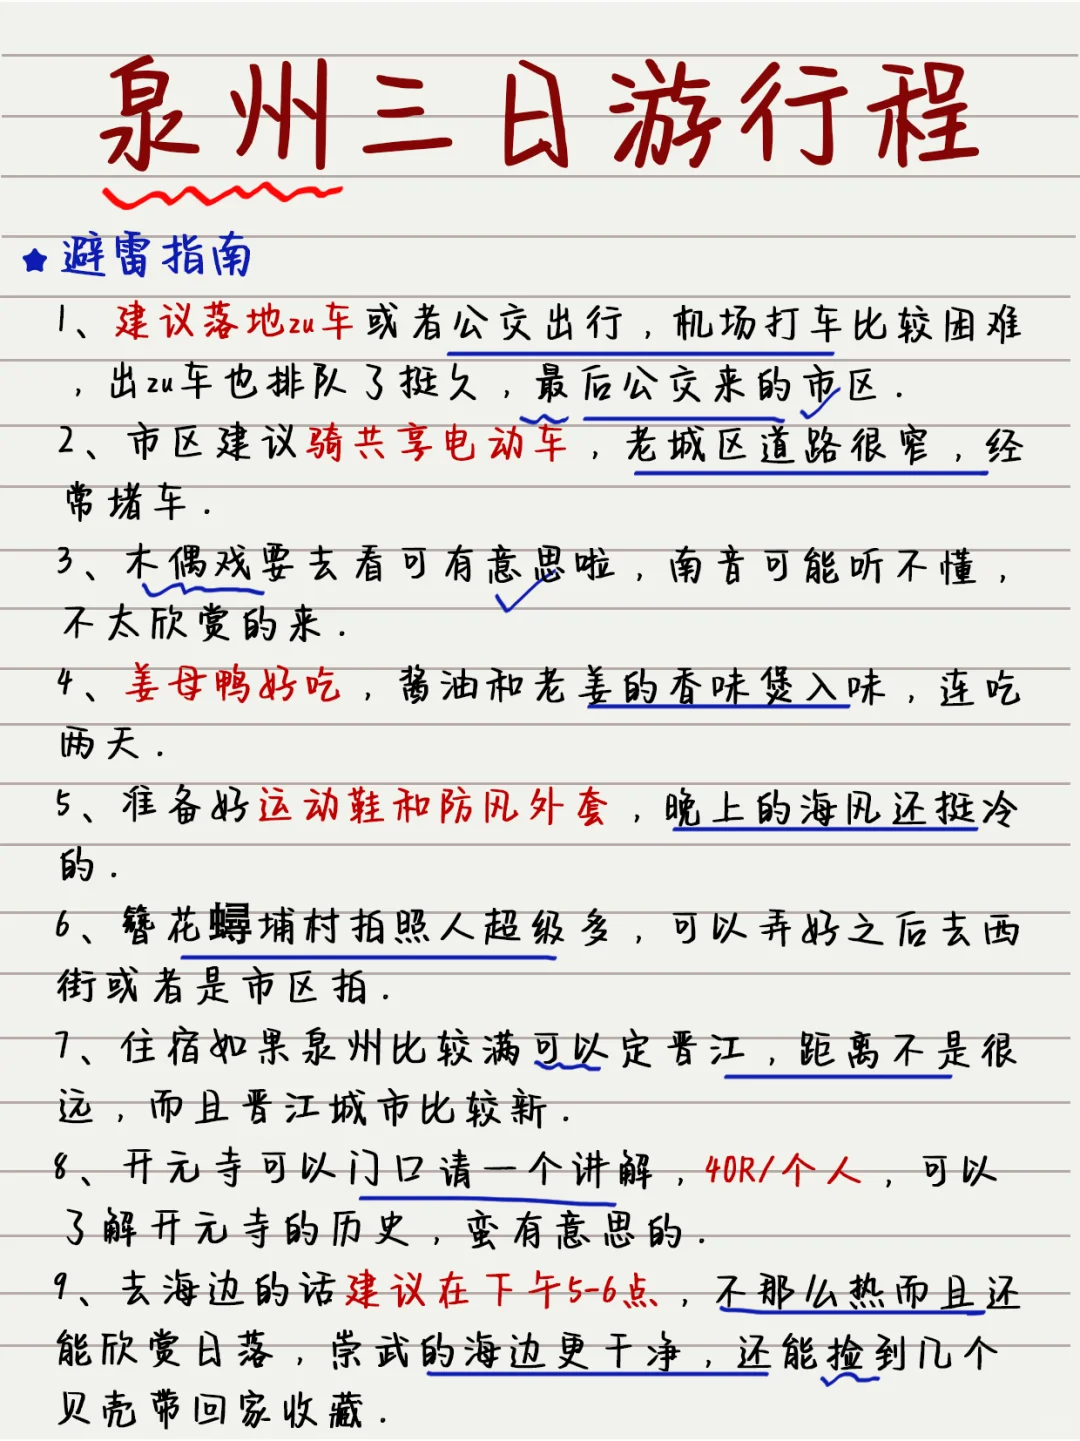 泉州三日游行程
★避雷指南
1、建议落地zu车或者公交出行，机场打车比较困难
，出zu车也排队了挺久，最后公交来的市区.
2、市区建议骑共享电动车，老城区道路很窄，经
常堵车.
3、木偶戏要去看可有意思啦，南音可能听不懂，
不太欣赏的来.
4、姜母鸭好吃，酱油和老姜的香味煲入味，连吃
两天.
5、准备好运动鞋和防风外套，晚上的海风还挺冷
的.
6、簪花蟳埔村拍照人超级多，可以弄好之后去西
街或者是市区拍.
7、住宿如果泉州比较满可以定晋江，距离不是很
远，而且晋江城市比较新.
8、开元寺可以门口请一个讲解，40R/个人，可以
了解开元寺的历史，蛮有意思的.
9、去海边的话建议在下午5-6点，不那么热而且还
能欣赏日落，崇武的海边更干净，还能捡到几个
贝壳带回家收藏.